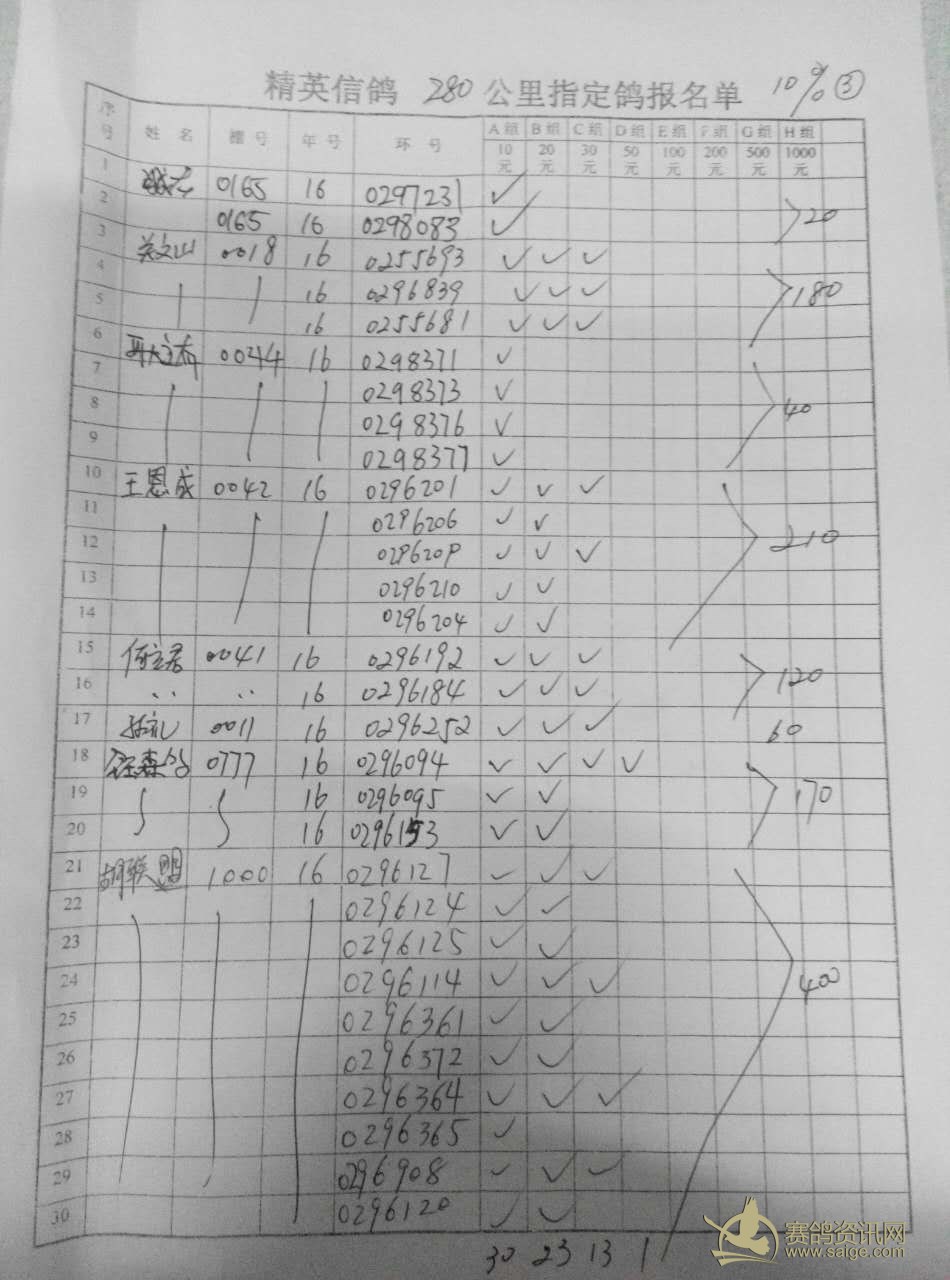 精英信鸽 280 公里指定鸽报名单 10% ③
序号 姓名 棚号 年号 环号 A组 B组 C组 D组 E组 F组 G组 H组
10元 20元 30元 50元 100元 200元 500元 1000元
1 0165 16 0297231 ✓
2 0165 16 0298083 ✓ 20
3 关文山 0018 16 0255693 ✓ ✓ ✓
4 16 0296839 ✓ ✓ ✓ 180
5 16 0255681 ✓ ✓ ✓
6 0044 16 0298371 ✓
7 0298373 ✓ 40
8 0298376 ✓
9 0298377 ✓
10 王恩成 0042 16 0296201 ✓ ✓ ✓
11 0296206 ✓ ✓
12 0296209 ✓ ✓ ✓ 210
13 0296210 ✓ ✓
14 0296204 ✓ ✓
15 何立君 0041 16 0296192 ✓ ✓ ✓
16 〃 〃 16 0296184 ✓ ✓ ✓ 120
17 0011 16 0296252 ✓ ✓ ✓ 60
18 0777 16 0296094 ✓ ✓ ✓ ✓
19 16 0296095 ✓ ✓ 170
20 16 0296153 ✓ ✓
21 胡联盟 1000 16 0296127 ✓ ✓ ✓
22 0296124 ✓ ✓
23 0296125 ✓ ✓
24 0296114 ✓ ✓ ✓ 400
25 0296361 ✓ ✓
26 0296372 ✓ ✓
27 0296364 ✓ ✓ ✓
28 0296365 ✓
29 0296908 ✓ ✓ ✓
30 0296120 ✓ ✓
30 23 13 1
赛鸽资讯网
www.saige.com